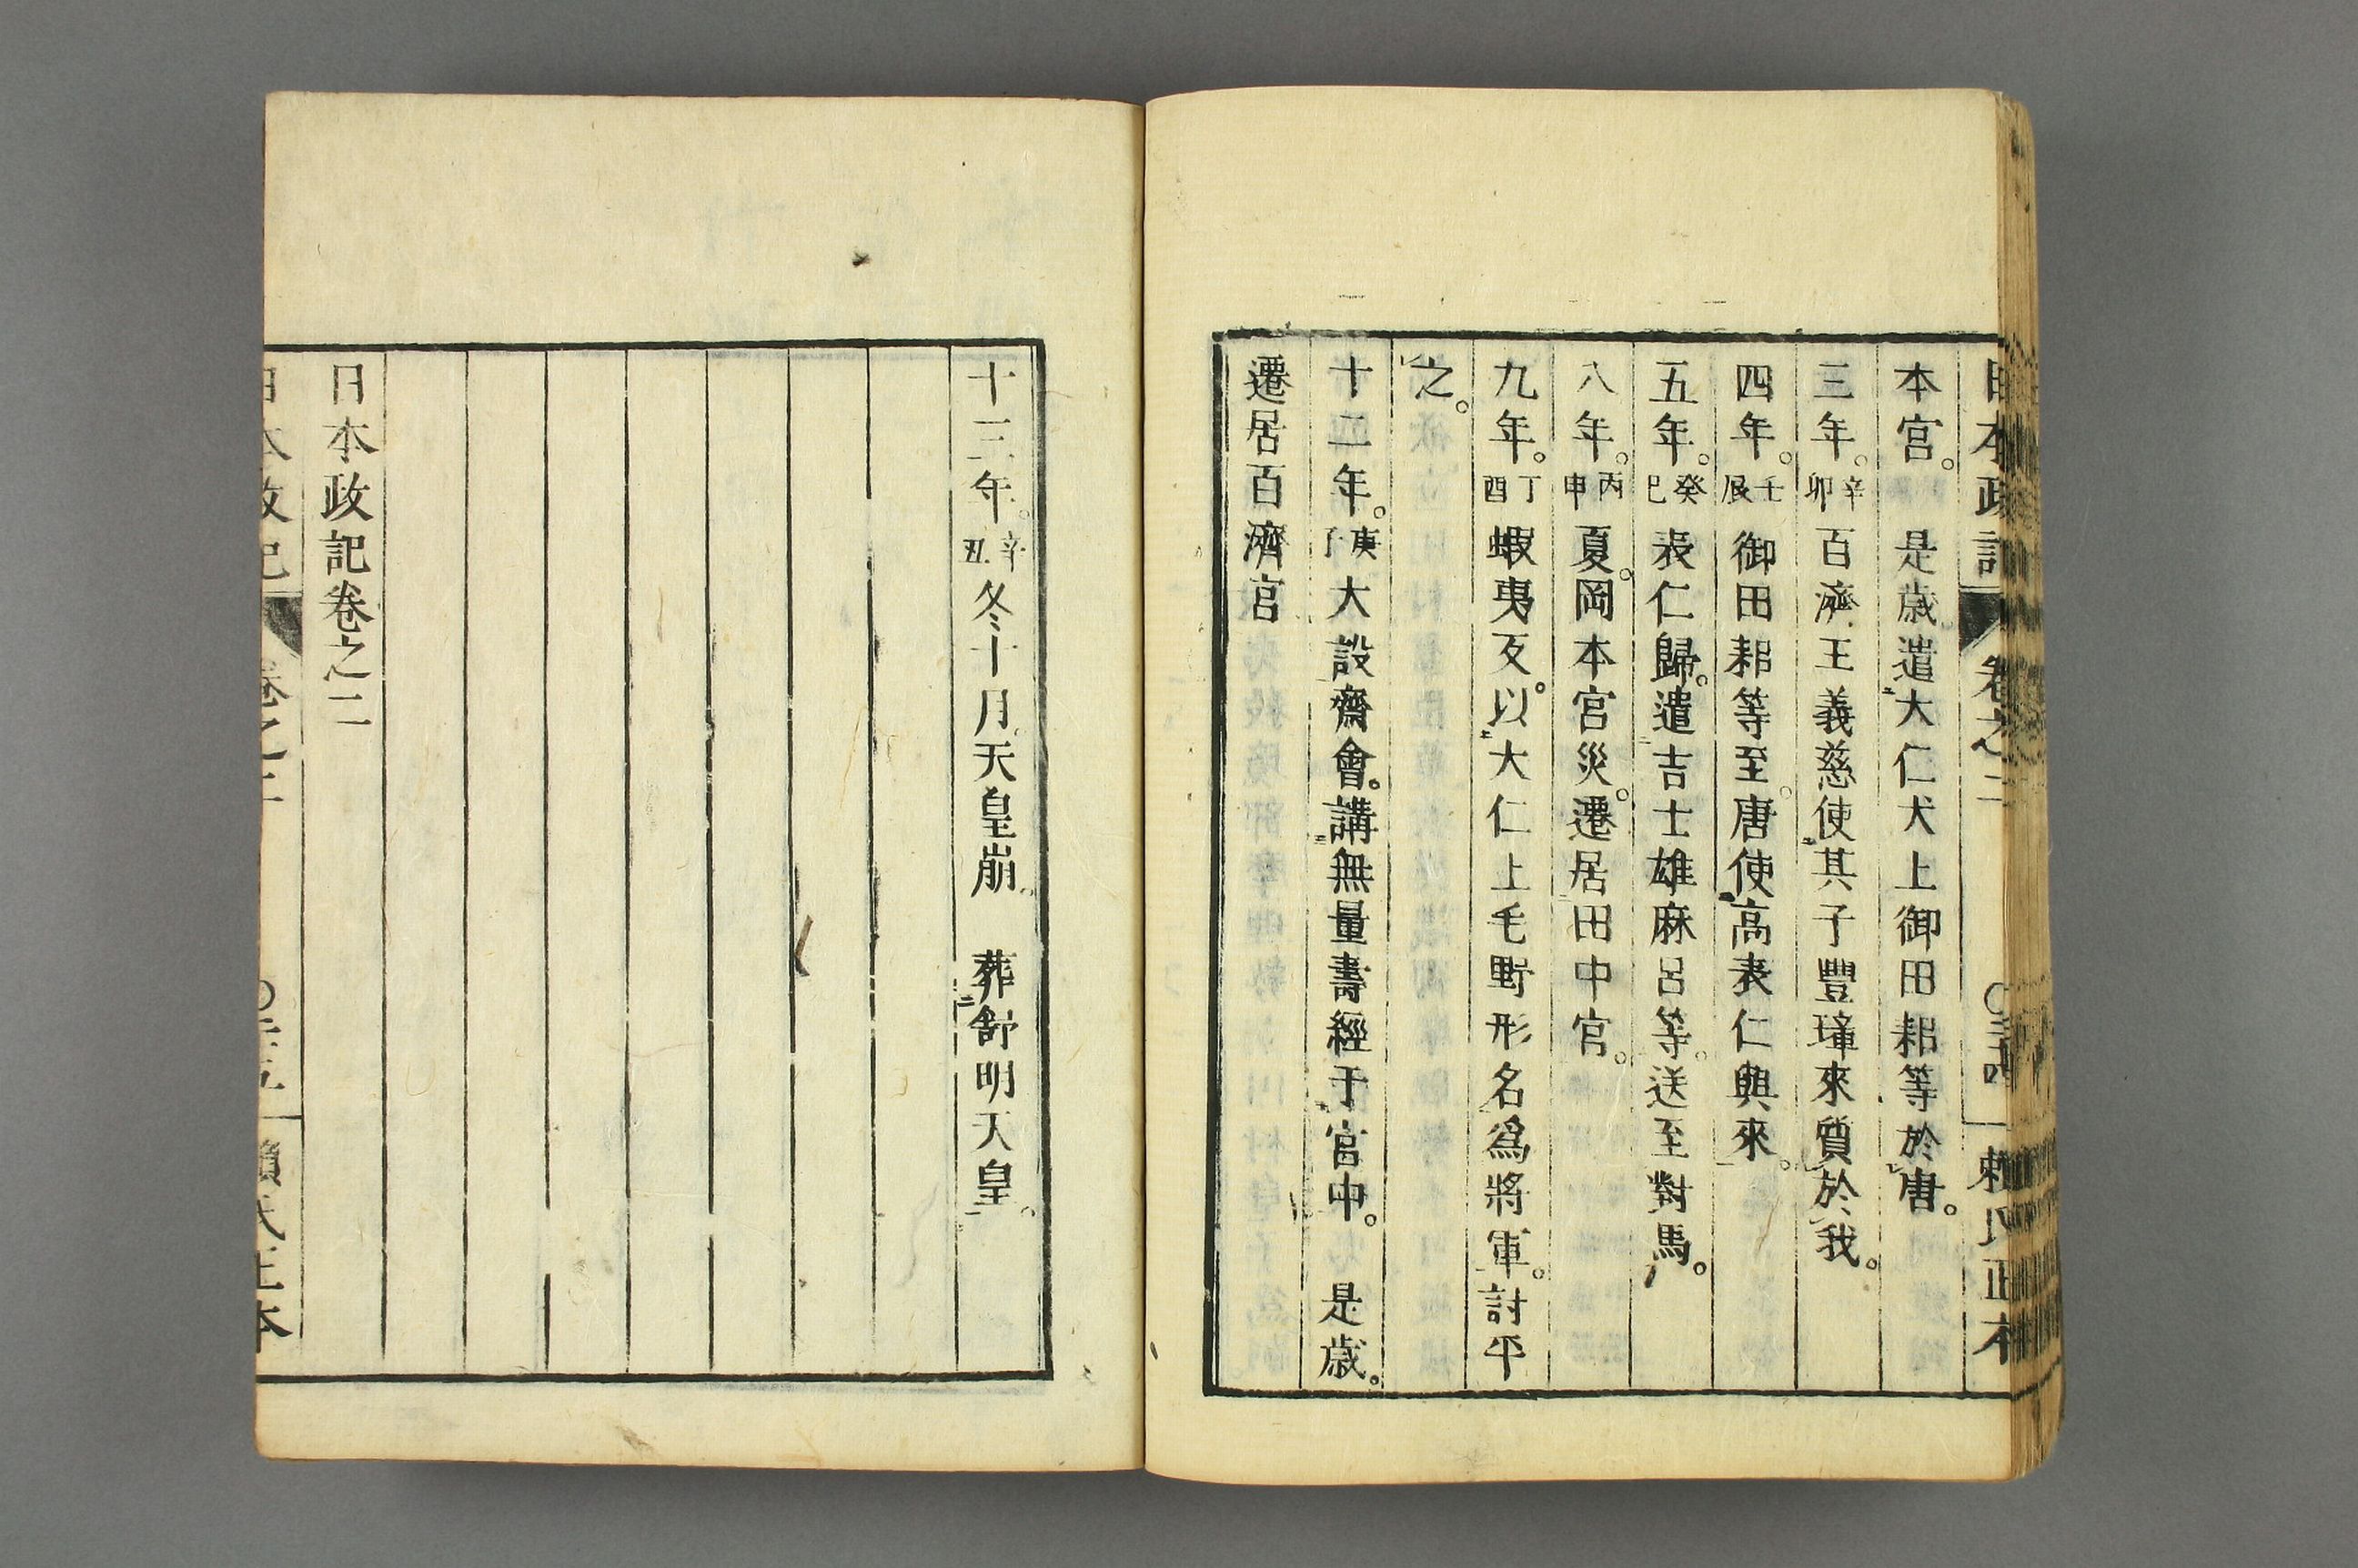 日本政記 卷之二 頼氏正本
本宮。 是歳遣大仁犬上御田耜等於唐。
三年。辛卯百濟王義慈使其子豐璋來質於我。
四年。壬辰御田耜等至唐。唐使高表仁與來。
五年。癸巳表仁歸。遣吉士雄麻呂等。送至對馬。
八年。丙申夏。岡本宮災。遷居田中宮。
九年。丁酉蝦夷反。以大仁上毛野形名爲將軍。討平
之。
十二年。庚子大設齋會。講無量壽經于宮中。 是歳。
遷居百濟宮
十三年。辛丑冬十月。天皇崩。 葬舒明天皇。
日本政記卷之二
日本政記 卷之二 頼氏正本